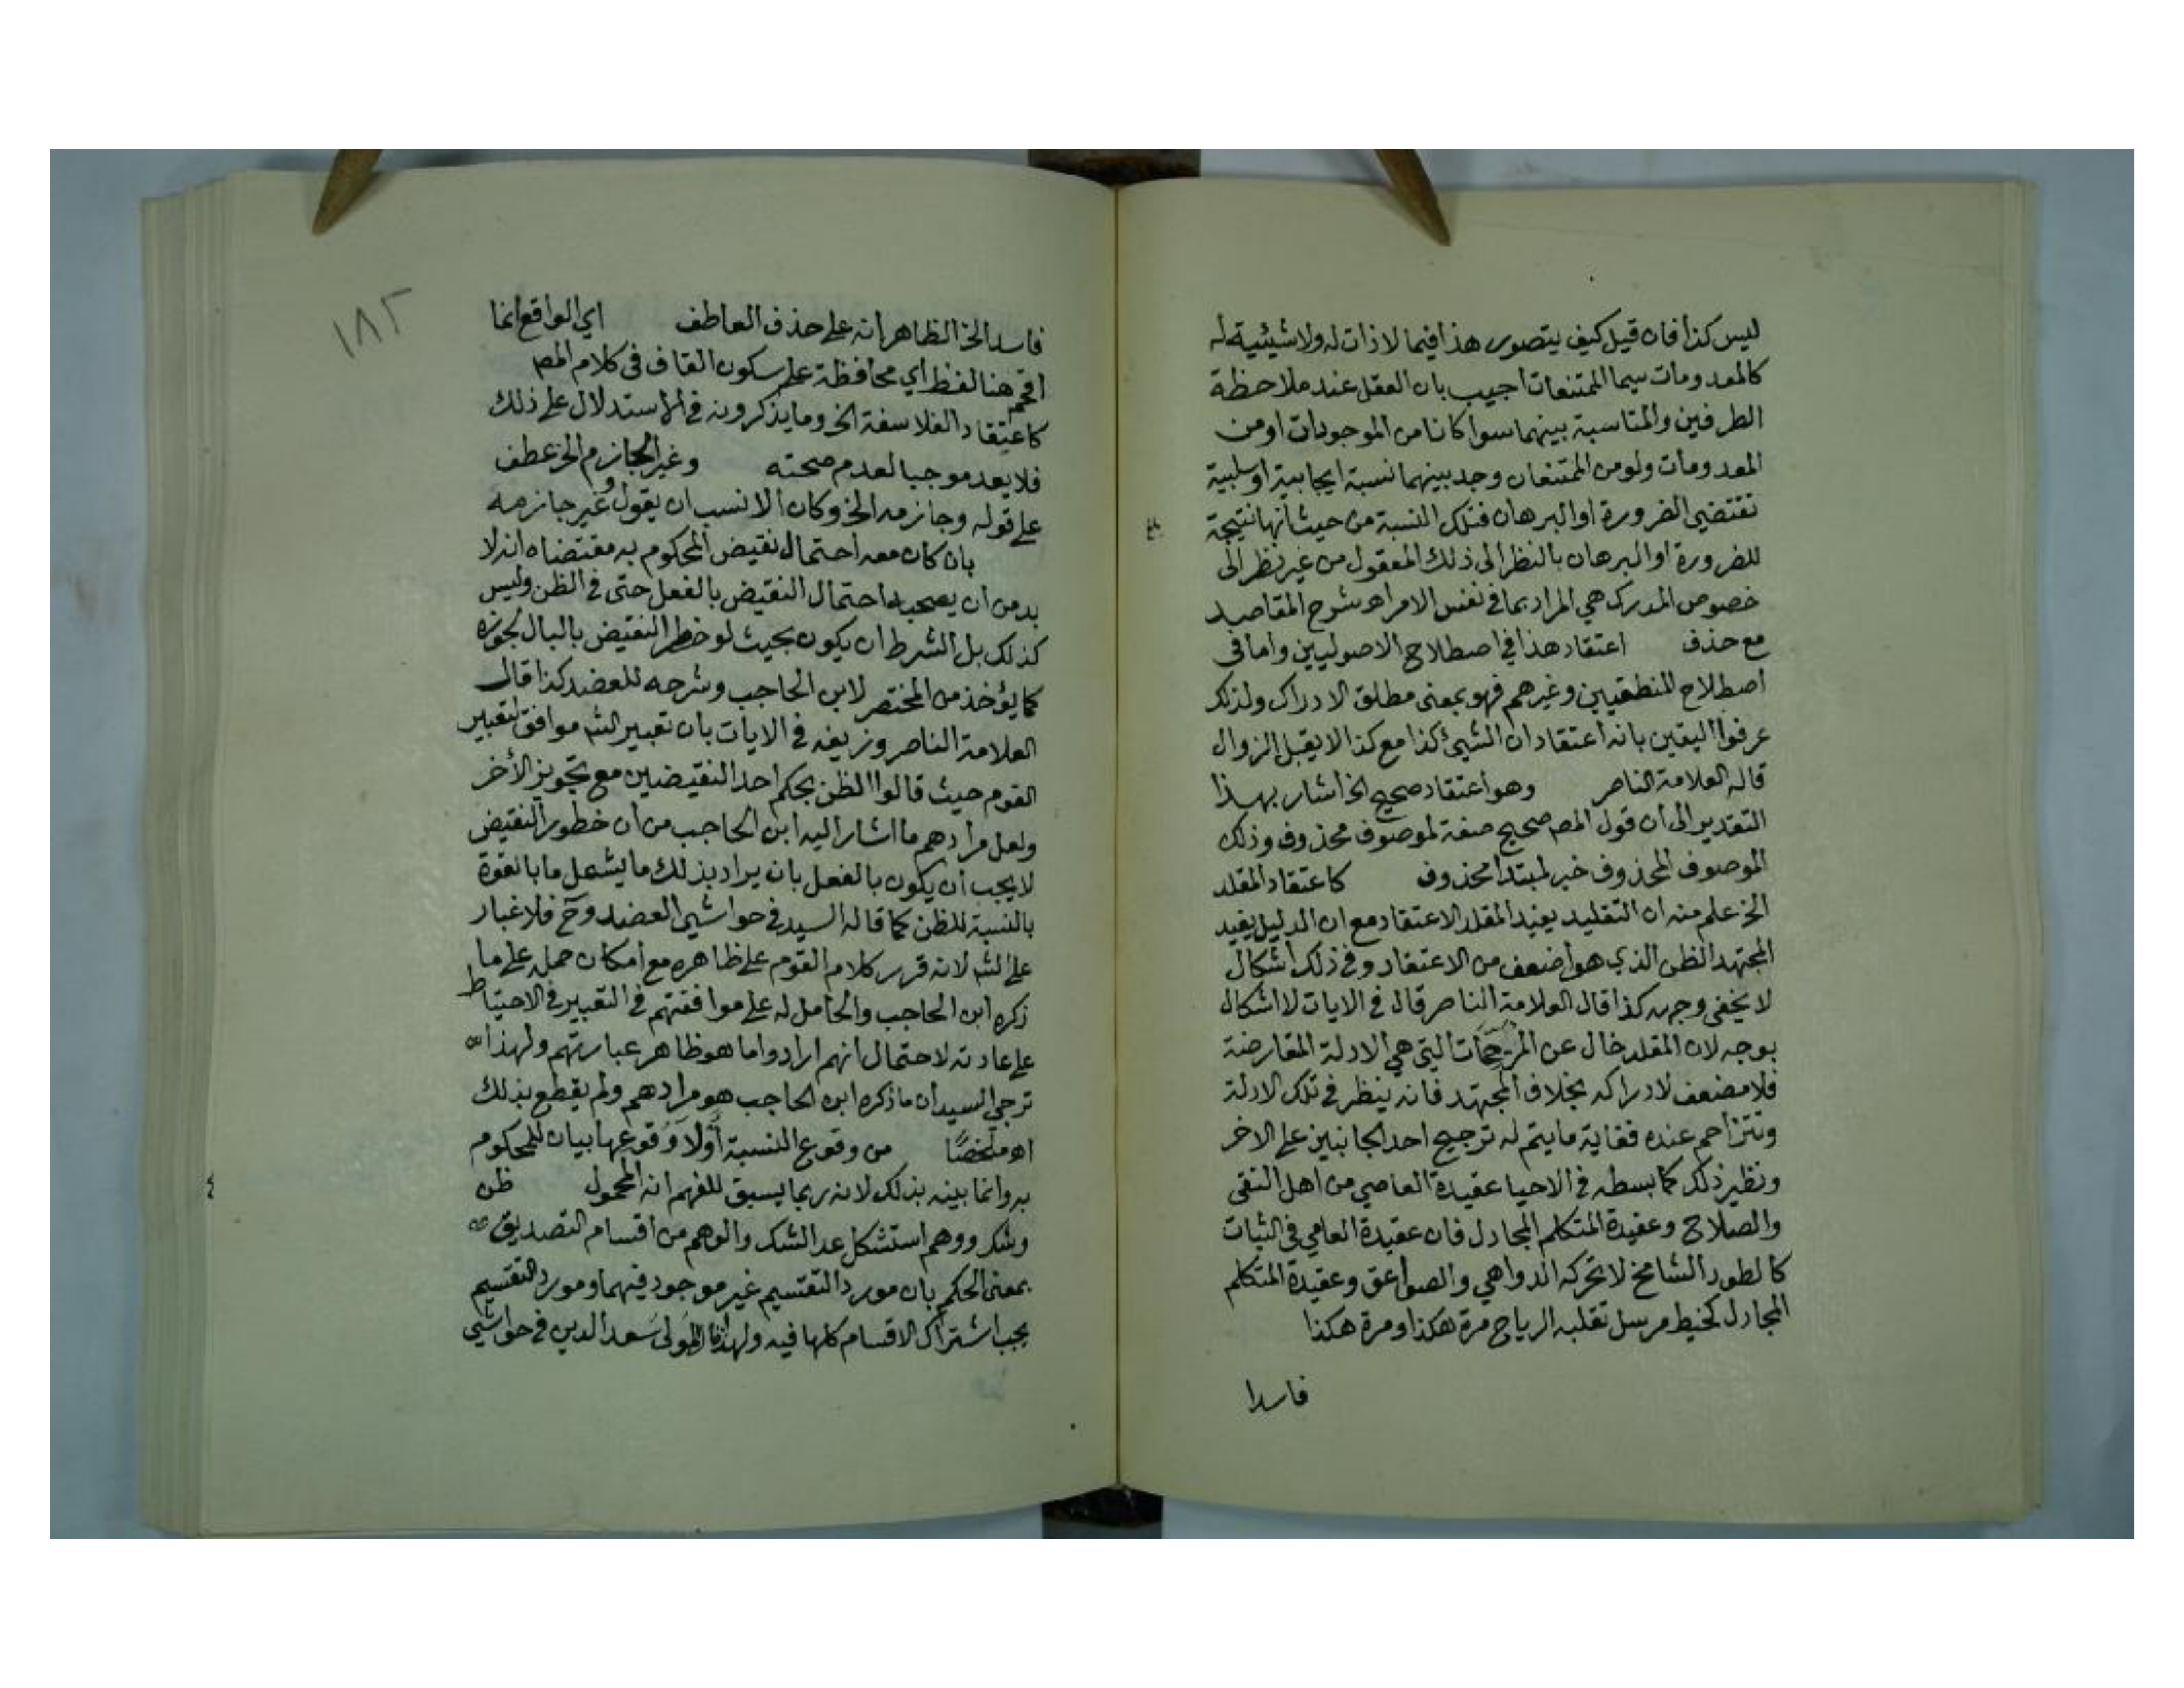 ليس كذا فان قيل كيف يتصور هذا فيما لا ذات له ولا شيئية له
كالمعدومات سيما الممتنعات اجيب بان العقل عند ملاحظة
الطرفين والمناسبة بينهما سوا كانا من الموجودات او من
المعدومات ولو من الممتنعات وجد بينهما نسبة ايجابية او سلبية
تقتضيي الضرورة او البرهان فتلك النسبة من حيث انها نتيجة
للضرورة او البرهان بالنظر الى ذلك المعقول من غير نظر الى
خصوص المدرك هي المراد بما في نفس الامر اه شرح المقاصد
مع حذف اعتقاد هذا في اصطلاح الاصوليين واما في
اصطلاح المنطقيين وغيرهم فهو بمعنى مطلق الادراك ولذلك
عرفوا اليقين بانه اعتقاد ان الشيئ كذا مع كذا لا يقبل الزوال
قاله العلامة الناصر وهو اعتقاد صحيح الخ اشار بهذا
التقدير الى ان قول المص صحيح صفة لموصوف محذوف وذلك
الموصوف المحذوف خبر لمبتدا محذوف كاعتقاد المقلد
الخ علم منه ان التقليد يفيد المقلد الاعتقاد مع ان الدليل يفيد
المجتهد الظن الذي هو اضعف من الاعتقاد وفي ذلك اشكال
لا يخفى وجهه كذا قال العلامة الناصر قال في الايات لا اشكال
بوجه لان المقلد خال عن المزحمات التي هي الادلة المتعارضة
فلا مضعف لادراكه بخلاف المجتهد فانه ينظر في تلك الادلة
وتتزاحم عنده فغاية ما يتم له ترجيح احد الجانبين على الاخر
ونظير ذلك كما بسطه في الاحيا عقيدة العامي من اهل التقى
والصلاح وعقيدة المتكلم المجادل فان عقيدة العامي في الثبات
كالطود الشامخ لا تحركه الدواهي والصواعق وعقيدة المتكلم
المجادل كخيط مرسل تقلبه الرياح مرة هكذا ومرة هكذا
فاسدا
١٨٢
فاسدا الخ الظاهر انه على حذف العاطف اي الواقع انما
اقحم هنا لفظ اي محافظة على سكون القاف في كلام المص
كاعتقاد الفلاسفة الخ وما يذكرونه في الاستدلال على ذلك
فلا يعد موجبا لعدم صحته وغير الجازم الخ عطف
على قوله وجازمه الخ وكان الانسب ان يقول وغير جازمه
بان كان معه احتمال نقيض المحكوم به مقتضاه انه لا
بد من ان يصحبه احتمال النقيض بالفعل حتى في الظن وليس
كذلك بل الشرط ان يكون بحيث لو خطر النقيض بالبال لجوزه
كما يؤخذ من المختصر لابن الحاجب وشرحه للعضد كذا قال
العلامة الناصر وزيفه في الايات بان تعبير الش موافق لتعبير
القوم حيث قالوا الظن يحكم احد النقيضين مع تجويز الأخر
ولعل مرادهم ما اشار اليه ابن الحاجب من ان خطور النقيض
لا يجب ان يكون بالفعل بان يراد بذلك ما يشمل ما بالقوة
بالنسبة للظن كما قاله السيد في حواشي العضد وح فلا غبار
على الش لانه قرر كلام القوم على ظاهره مع امكان حمله على ما
ذكره ابن الحاجب والحامل له على موافقتهم في التعبير في الاحتياط
على عادته لاحتمال انهم ارادوا ما هو ظاهر عبارتهم ولهذا
ترجى السيد ان ما ذكره ابن الحاجب هو مرادهم ولم يقطع بذلك
اه ملخصًا من وقوع النسبة أولا وقوعها بيان للمحكوم
به وانما بينه بذلك لانه ربما يسبق للفهم انه المحمول ظن
وشك ووهم استشكل عد الشك والوهم من اقسام التصديق
بمعنى الحكم بان مورد التقسيم غير موجود فيهما ومورد التقسيم
يجب اشتراك الاقسام كلها فيه ولهذا المولى سعد الدين في حواشي